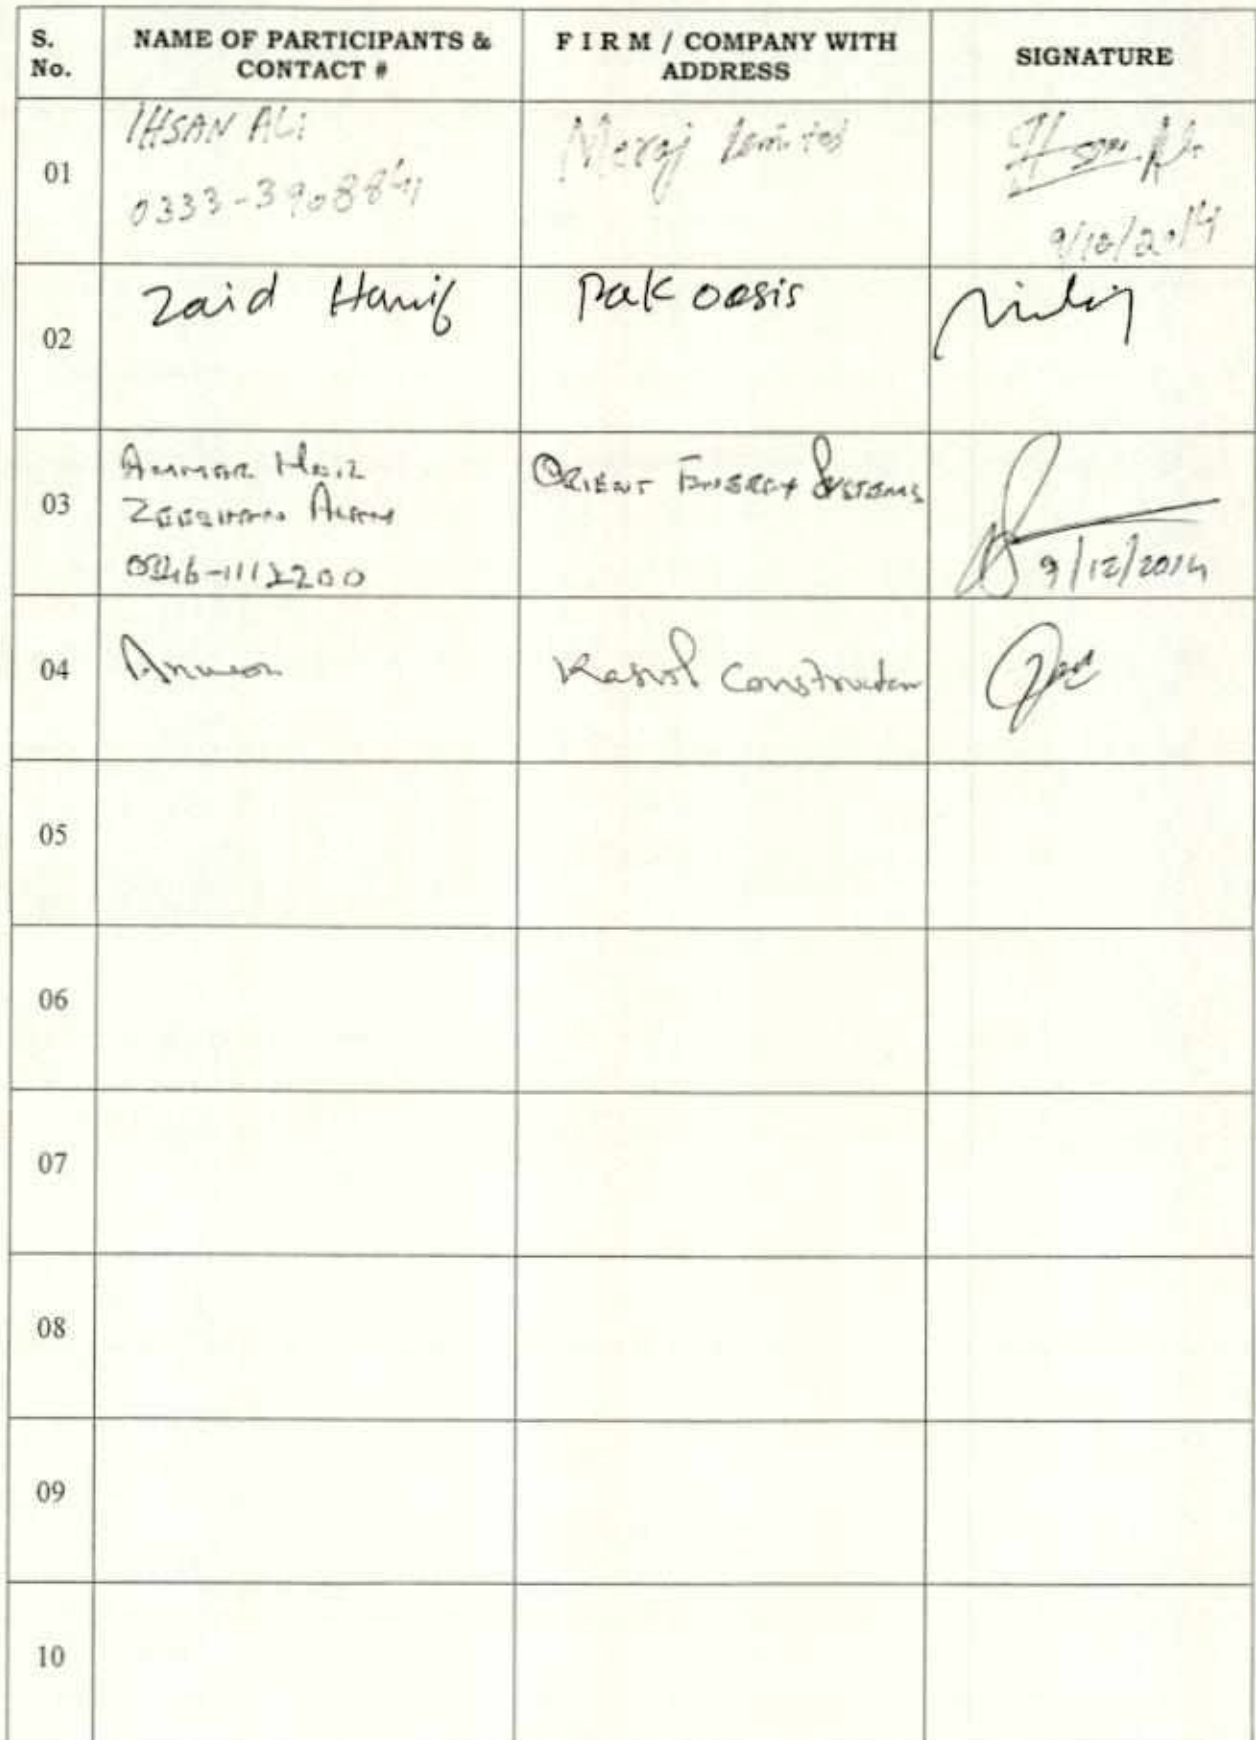 S. No.
NAME OF PARTICIPANTS & CONTACT #
F I R M / COMPANY WITH ADDRESS
SIGNATURE
01
IHSAN ALi
0333-3908841
Meraj Limited
9/12/2014
02
Zaid Hanif
Pak oasis
03
Ammar
Zeeshan
ORIENT ENERGY SYSTEMS
9/12/2014
04
Construction
05
06
07
08
09
10